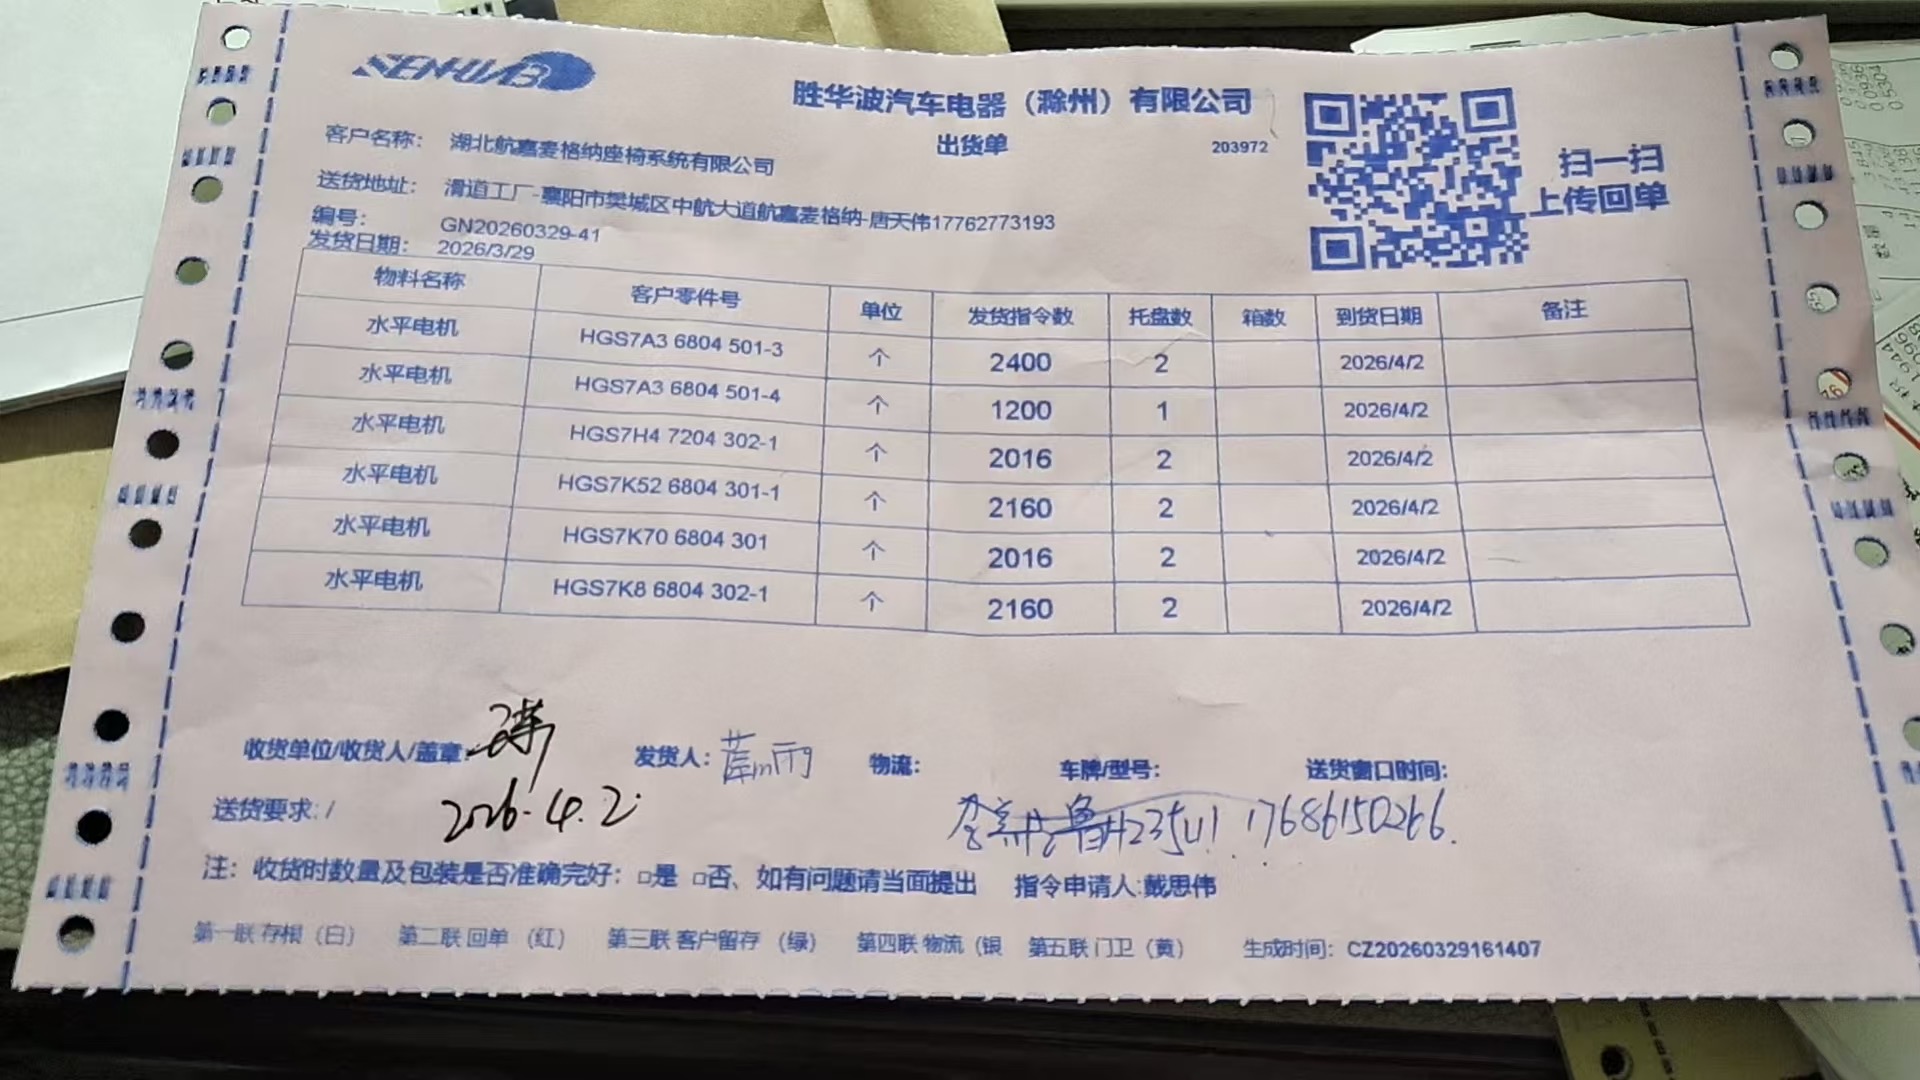 SENHUAB
胜华波汽车电器（滁州）有限公司
出货单
203972
扫一扫
上传回单
客户名称： 湖北航嘉麦格纳座椅系统有限公司
送货地址： 滑道工厂-襄阳市樊城区中航大道航嘉麦格纳-唐天伟17762773193
编号： GN20260329-41
发货日期： 2026/3/29
物料名称 客户零件号 单位 发货指令数 托盘数 箱数 到货日期 备注
水平电机 HGS7A3 6804 501-3 个 2400 2 2026/4/2
水平电机 HGS7A3 6804 501-4 个 1200 1 2026/4/2
水平电机 HGS7H4 7204 302-1 个 2016 2 2026/4/2
水平电机 HGS7K52 6804 301-1 个 2160 2 2026/4/2
水平电机 HGS7K70 6804 301 个 2016 2 2026/4/2
水平电机 HGS7K8 6804 302-1 个 2160 2 2026/4/2
收货单位/收货人/盖章： 发货人： 物流： 车牌/型号： 送货窗口时间：
送货要求：/ 2026.4.2 17686150266
注：收货时数量及包装是否准确完好：□是 □否、如有问题请当面提出 指令申请人:戴思伟
第一联 存根（白） 第二联 回单（红） 第三联 客户留存（绿） 第四联 物流（银 第五联 门卫（黄） 生成时间：CZ20260329161407